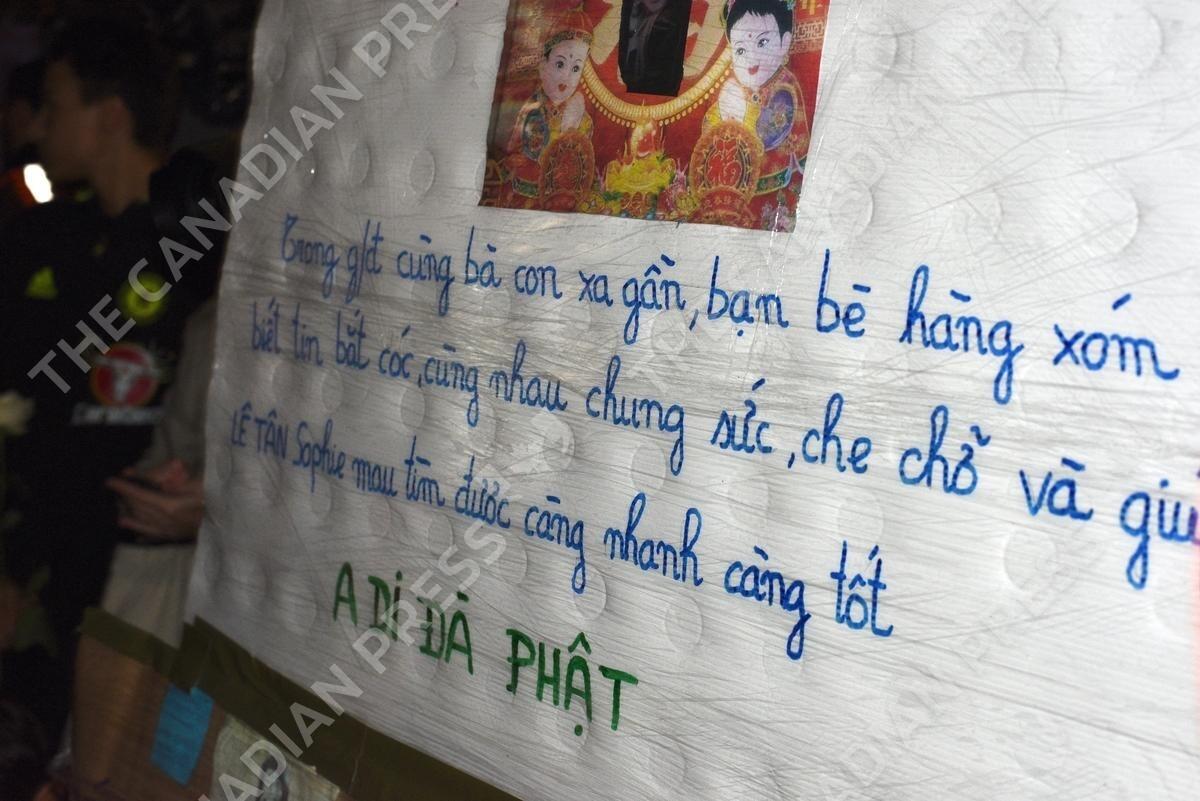 Trong g/đ cùng bà con xa gần, bạn bè hàng xóm
biết tin bắt cóc, cùng nhau chung sức, che chở và giú
LÊ TÂN Sophie mau tìm được càng nhanh càng tốt
A DI ĐÀ PHẬT
THE CANADIAN PRESS